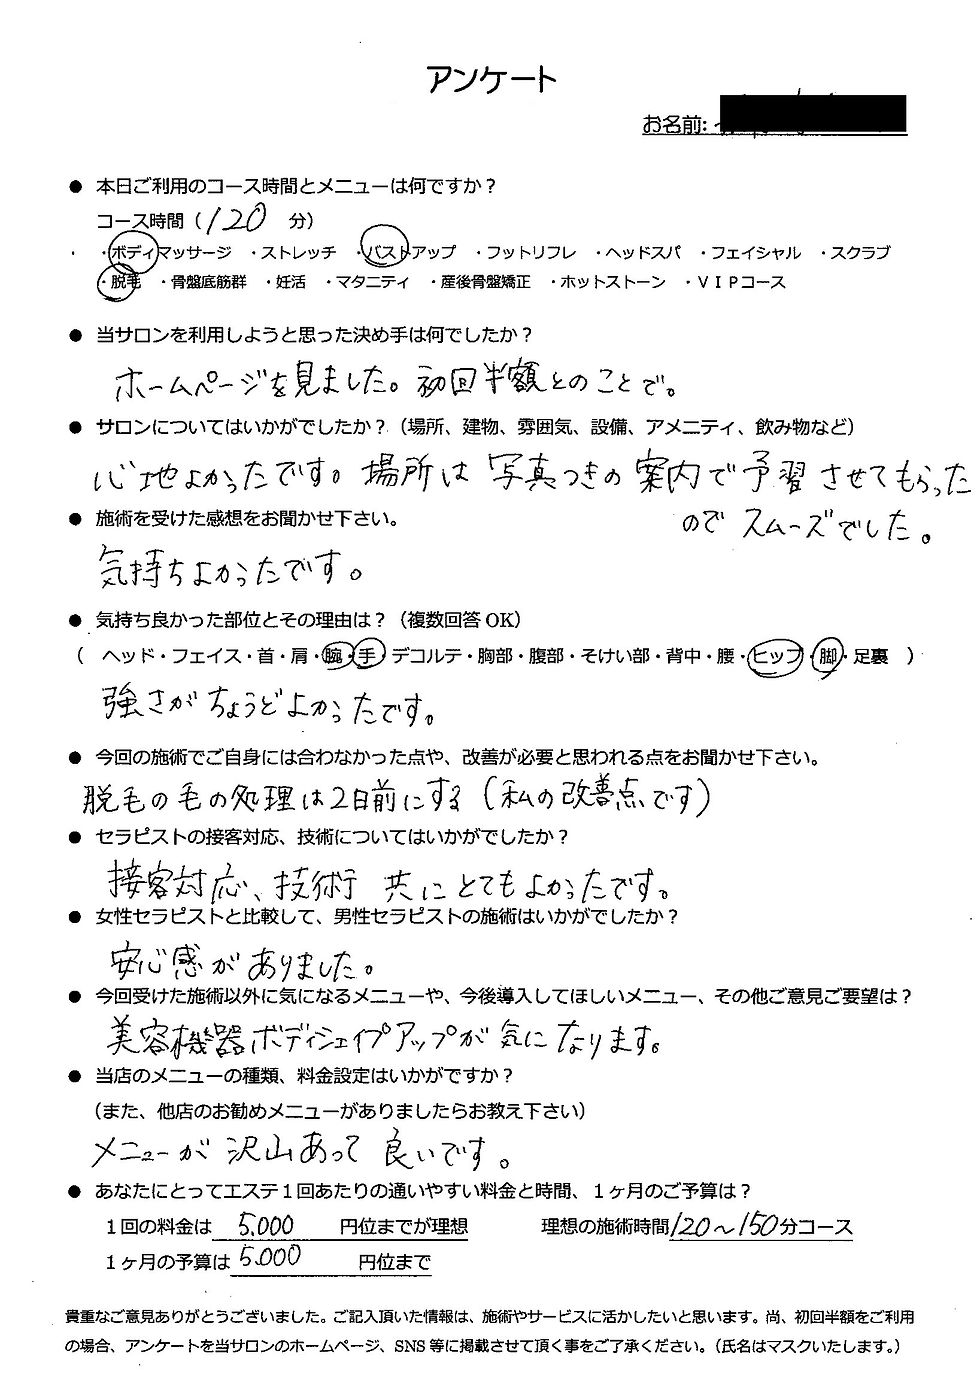 アンケート
お名前:
● 本日ご利用のコース時間とメニューは何ですか？
コース時間（120 分）
・ボディマッサージ ・ストレッチ ・バストアップ ・フットリフレ ・ヘッドスパ ・フェイシャル ・スクラブ
・脱毛 ・骨盤底筋群 ・妊活 ・マタニティ ・産後骨盤矯正 ・ホットストーン ・ＶＩＰコース
● 当サロンを利用しようと思った決め手は何でしたか？
ホームページを見ました。初回半額とのことで。
● サロンについてはいかがでしたか？（場所、建物、雰囲気、設備、アメニティ、飲み物など）
心地よかったです。場所は写真つきの案内で予習させてもらった
のでスムーズでした。
● 施術を受けた感想をお聞かせ下さい。
気持ちよかったです。
● 気持ち良かった部位とその理由は？（複数回答 OK）
（ ヘッド・フェイス・首・肩・腕・手・デコルテ・胸部・腹部・そけい部・背中・腰・ヒップ・脚・足裏 ）
強さがちょうどよかったです。
● 今回の施術でご自身には合わなかった点や、改善が必要と思われる点をお聞かせ下さい。
脱毛の毛の処理は2日前にする（私の改善点です）
● セラピストの接客対応、技術についてはいかがでしたか？
接客対応、技術共にとてもよかったです。
● 女性セラピストと比較して、男性セラピストの施術はいかがでしたか？
安心感がありました。
● 今回受けた施術以外に気になるメニューや、今後導入してほしいメニュー、その他ご意見ご要望は？
美容機器ボディシェイプアップが気になります。
● 当店のメニューの種類、料金設定はいかがですか？
（また、他店のお勧めメニューがありましたらお教え下さい）
メニューが沢山あって良いです。
● あなたにとってエステ１回あたりの通いやすい料金と時間、１ヶ月のご予算は？
１回の料金は 5,000 円位までが理想 理想の施術時間 120～150分コース
１ヶ月の予算は 5.000 円位まで
貴重なご意見ありがとうございました。ご記入頂いた情報は、施術やサービスに活かしたいと思います。尚、初回半額をご利用
の場合、アンケートを当サロンのホームページ、SNS 等に掲載させて頂く事をご了承ください。（氏名はマスクいたします。）